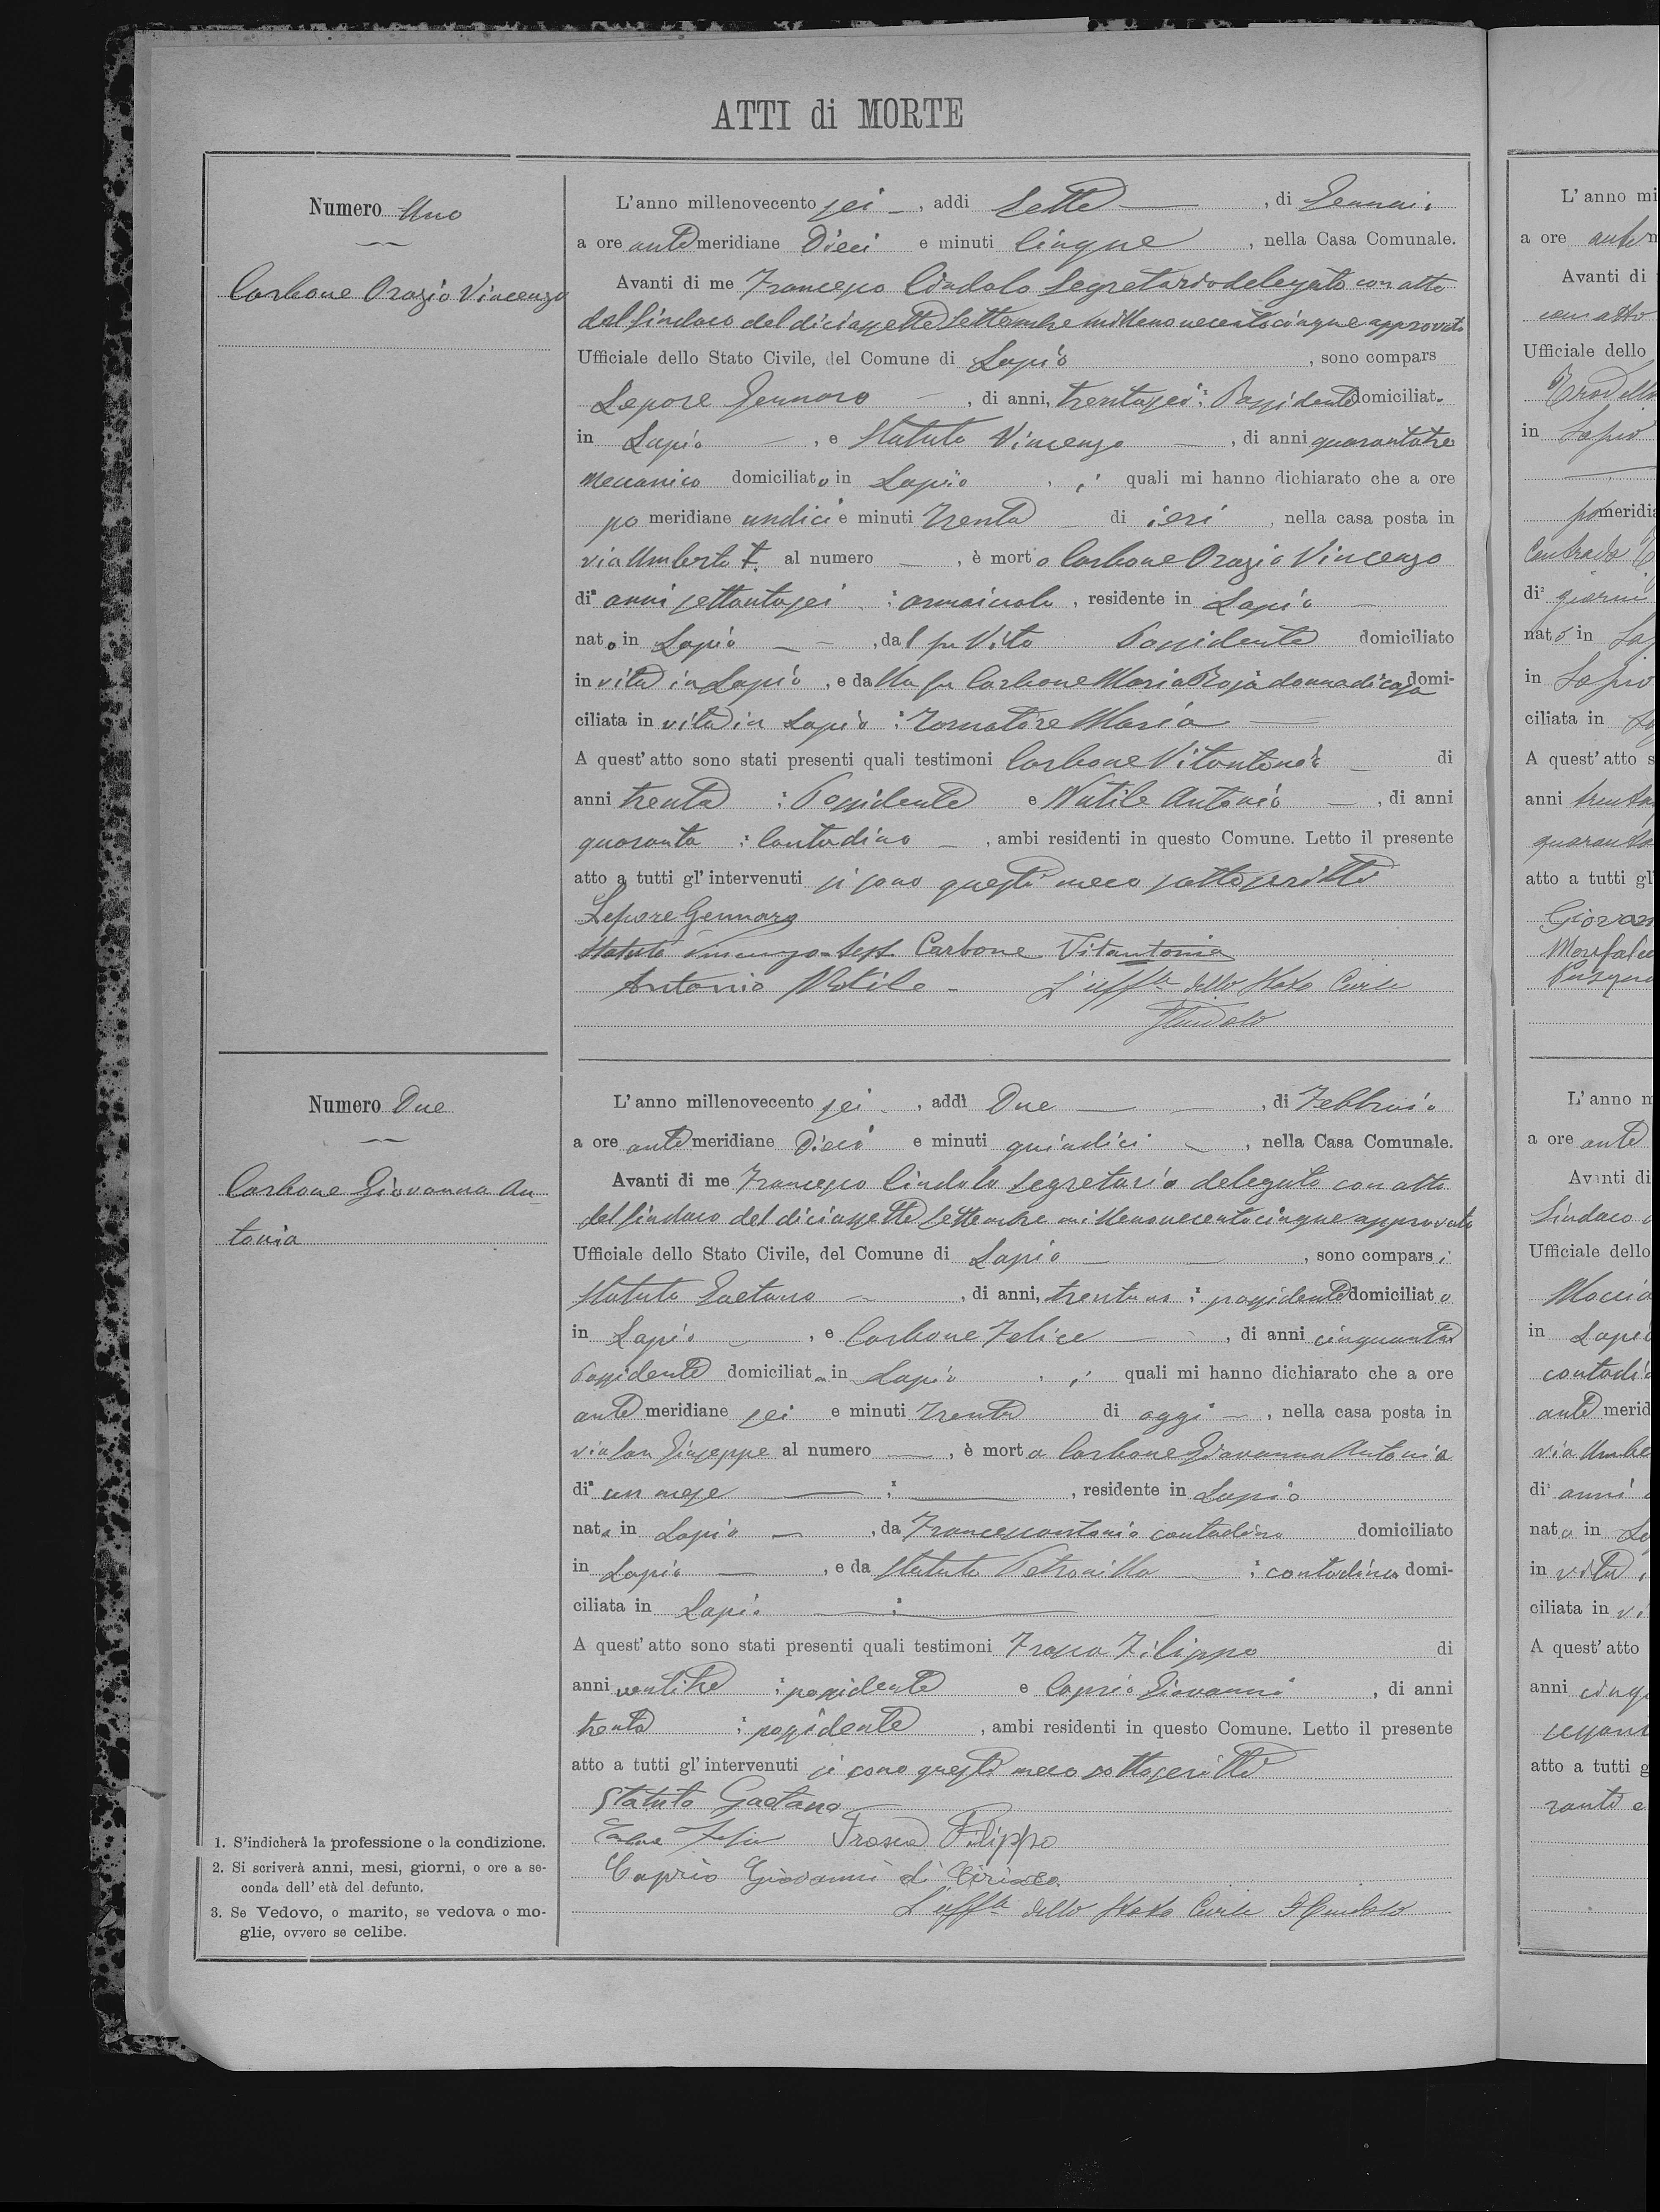 ATTI di MORTE
Numero Uno
Carbone Orazio Vincenzo
L'anno millenovecento sei, addi Sette, di Gennaio
a ore antemeridiane Dieci e minuti Cinque, nella Casa Comunale.
Avanti di me Francesco Cindolo Segretario delegato con atto
del Sindaco del diciassette Settembre millenovecentocinque approvato
Ufficiale dello Stato Civile, del Comune di Lapio, sono compars
Lepore Gennaro, di anni, trentasei; Possidente domiciliat
in Lapio, e Statuto Vincenzo, di anni quarantatre
meccanico domiciliato in Lapio, i quali mi hanno dichiarato che a ore
po meridiane undici e minuti Trenta di ieri, nella casa posta in
via Umberto I. al numero, è morto Carbone Orazio Vincenzo
di anni settantasei; residente in Lapio
nato in Lapio, dal fu Vito Possidente domiciliato
in vita in Lapio, e dalla fu Carbone Maria Rosa donna di casa domi-
ciliata in vita in Lapio; Tornatore Maria
A quest'atto sono stati presenti quali testimoni Carbone Vitantonio di
anni trenta; Possidente e Notile Antonio, di anni
quaranta; Contadino, ambi residenti in questo Comune. Letto il presente
atto a tutti gl'intervenuti si sono questi meco sottoscritti
Lepore Gennaro
Statuto Vincenzo Carbone Vitantonio
Antonio Notile - L'uff.le dello Stato Civile
FCindolo
Numero Due
Carbone Giovanna An
tonia
L'anno millenovecento sei, addi Due, di Febbraio
a ore antemeridiane Dieci e minuti quindici, nella Casa Comunale.
Avanti di me Francesco Cindolo Segretario delegato con atto
del Sindaco del diciassette Settembre millenovecentocinque approvato
Ufficiale dello Stato Civile, del Comune di Lapio, sono comparsi
Statuto Gaetano, di anni, trentuno; possidente domiciliato
in Lapio, e Carbone Felice, di anni cinquanta
Possidente domiciliat in Lapio, i quali mi hanno dichiarato che a ore
ante meridiane sei e minuti Trenta di oggi, nella casa posta in
via San Giuseppe al numero, è morta Carbone Giovanna Antonia
di un mese; residente in Lapio
nata in Lapio, da Francescantonio contadino domiciliato
in Lapio, e da Statuto Petronilla; contadina domi-
ciliata in Lapio;
A quest'atto sono stati presenti quali testimoni Frasca Filippo di
anni ventitre; possidente e Caprio Giovanni, di anni
trenta; possidente, ambi residenti in questo Comune. Letto il presente
atto a tutti gl'intervenuti si sono questi meco sottoscritti
Statuto Gaetano
Frasca Filippo
Caprio Giovanni di Ciriaco
L'uff.le dello Stato Civile FCindolo
1. S'indicherà la professione o la condizione.
2. Si scriverà anni, mesi, giorni, o ore a se-
conda dell'età del defunto.
3. Se Vedovo, o marito, se vedova o mo-
glie, ovvero se celibe.
L'anno mi
a ore ante m
Avanti di
con atto
Ufficiale dello
in Lapio
pomeridia
Contrada
di giorni
nato in La
in Lapio
ciliata in
A quest'atto s
anni trenta
quaranta
atto a tutti gl
Giovan
Monfalco
L'anno m
a ore ante
Avanti di
Sindaco
Ufficiale dello
Moccia
in Lapio
contadi
ante merid
via Umbe
di anni
nato in La
in vita
ciliata in vi
A quest'atto
anni cinq
sessant
atto a tutti g